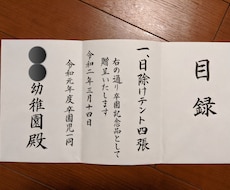 目録
一、日除けテント四張
右の通り卒園記念品として
贈呈いたします
令和二年三月十四日
令和元年度卒園児一同
幼稚園殿